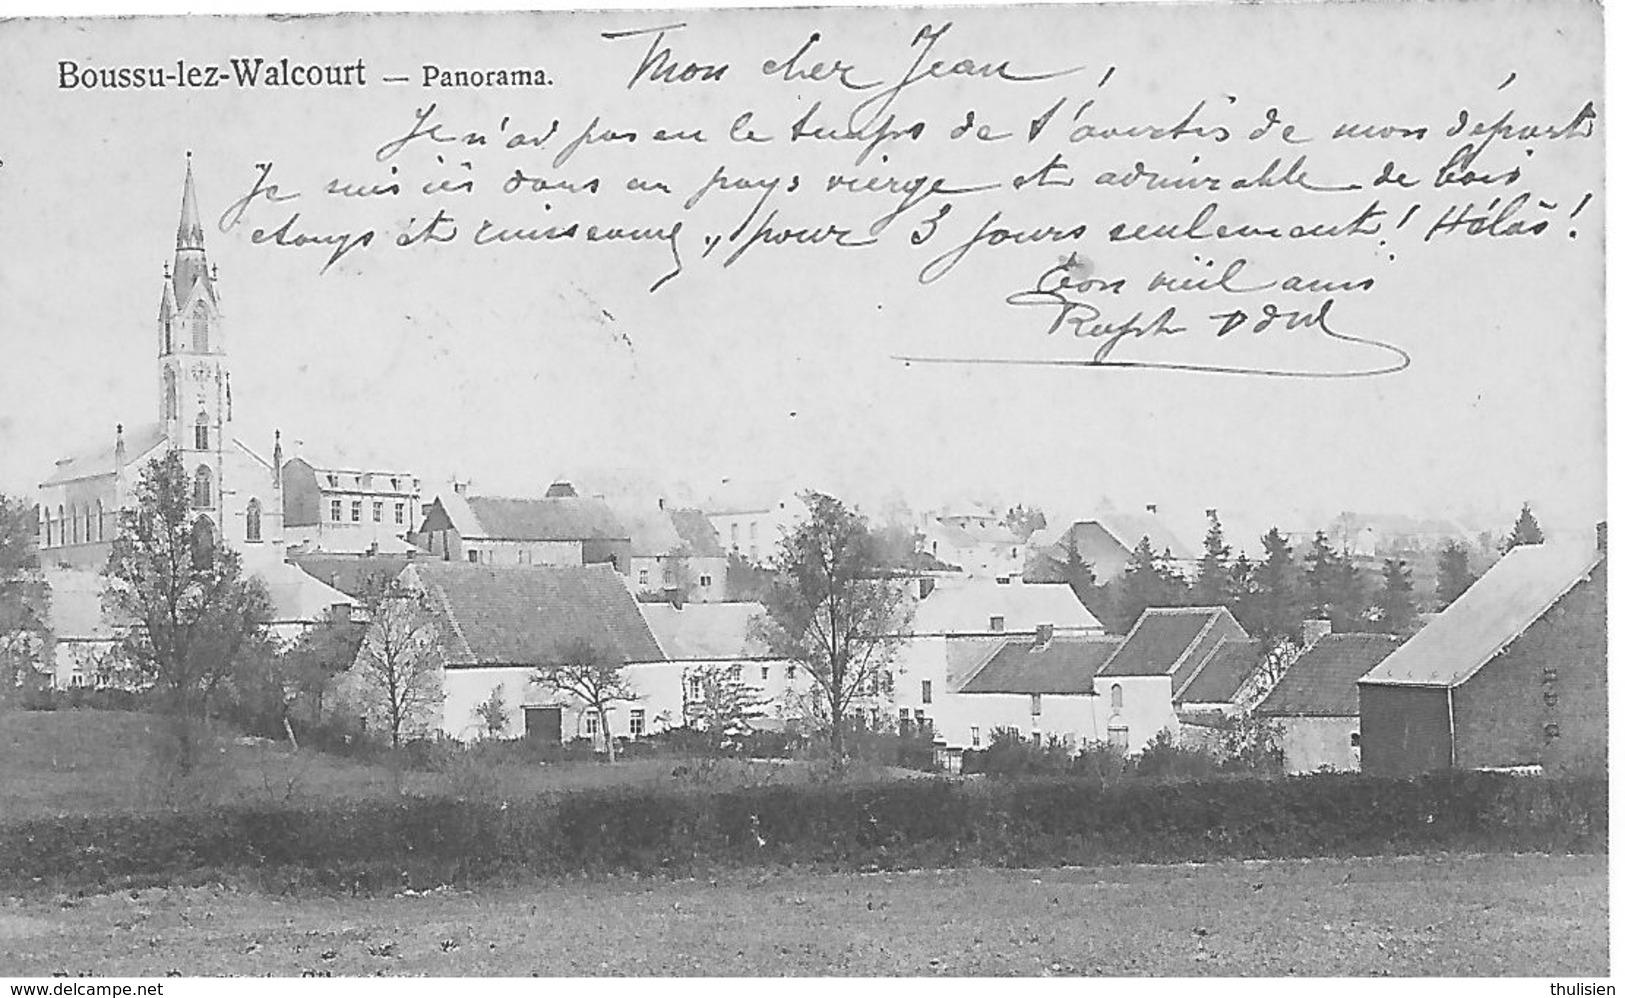 Boussu-lez-Walcourt — Panorama.
Mon cher Jean,
Je n'ai pas eu le temps de t'avertir de mon départ,
Je suis ici dans un pays vierge et admirable de bois
étangs et ruisseaux, pour 3 jours seulement! Hélas!
Ton vieil ami
H. D. G.
www.delcampe.net
thulisien